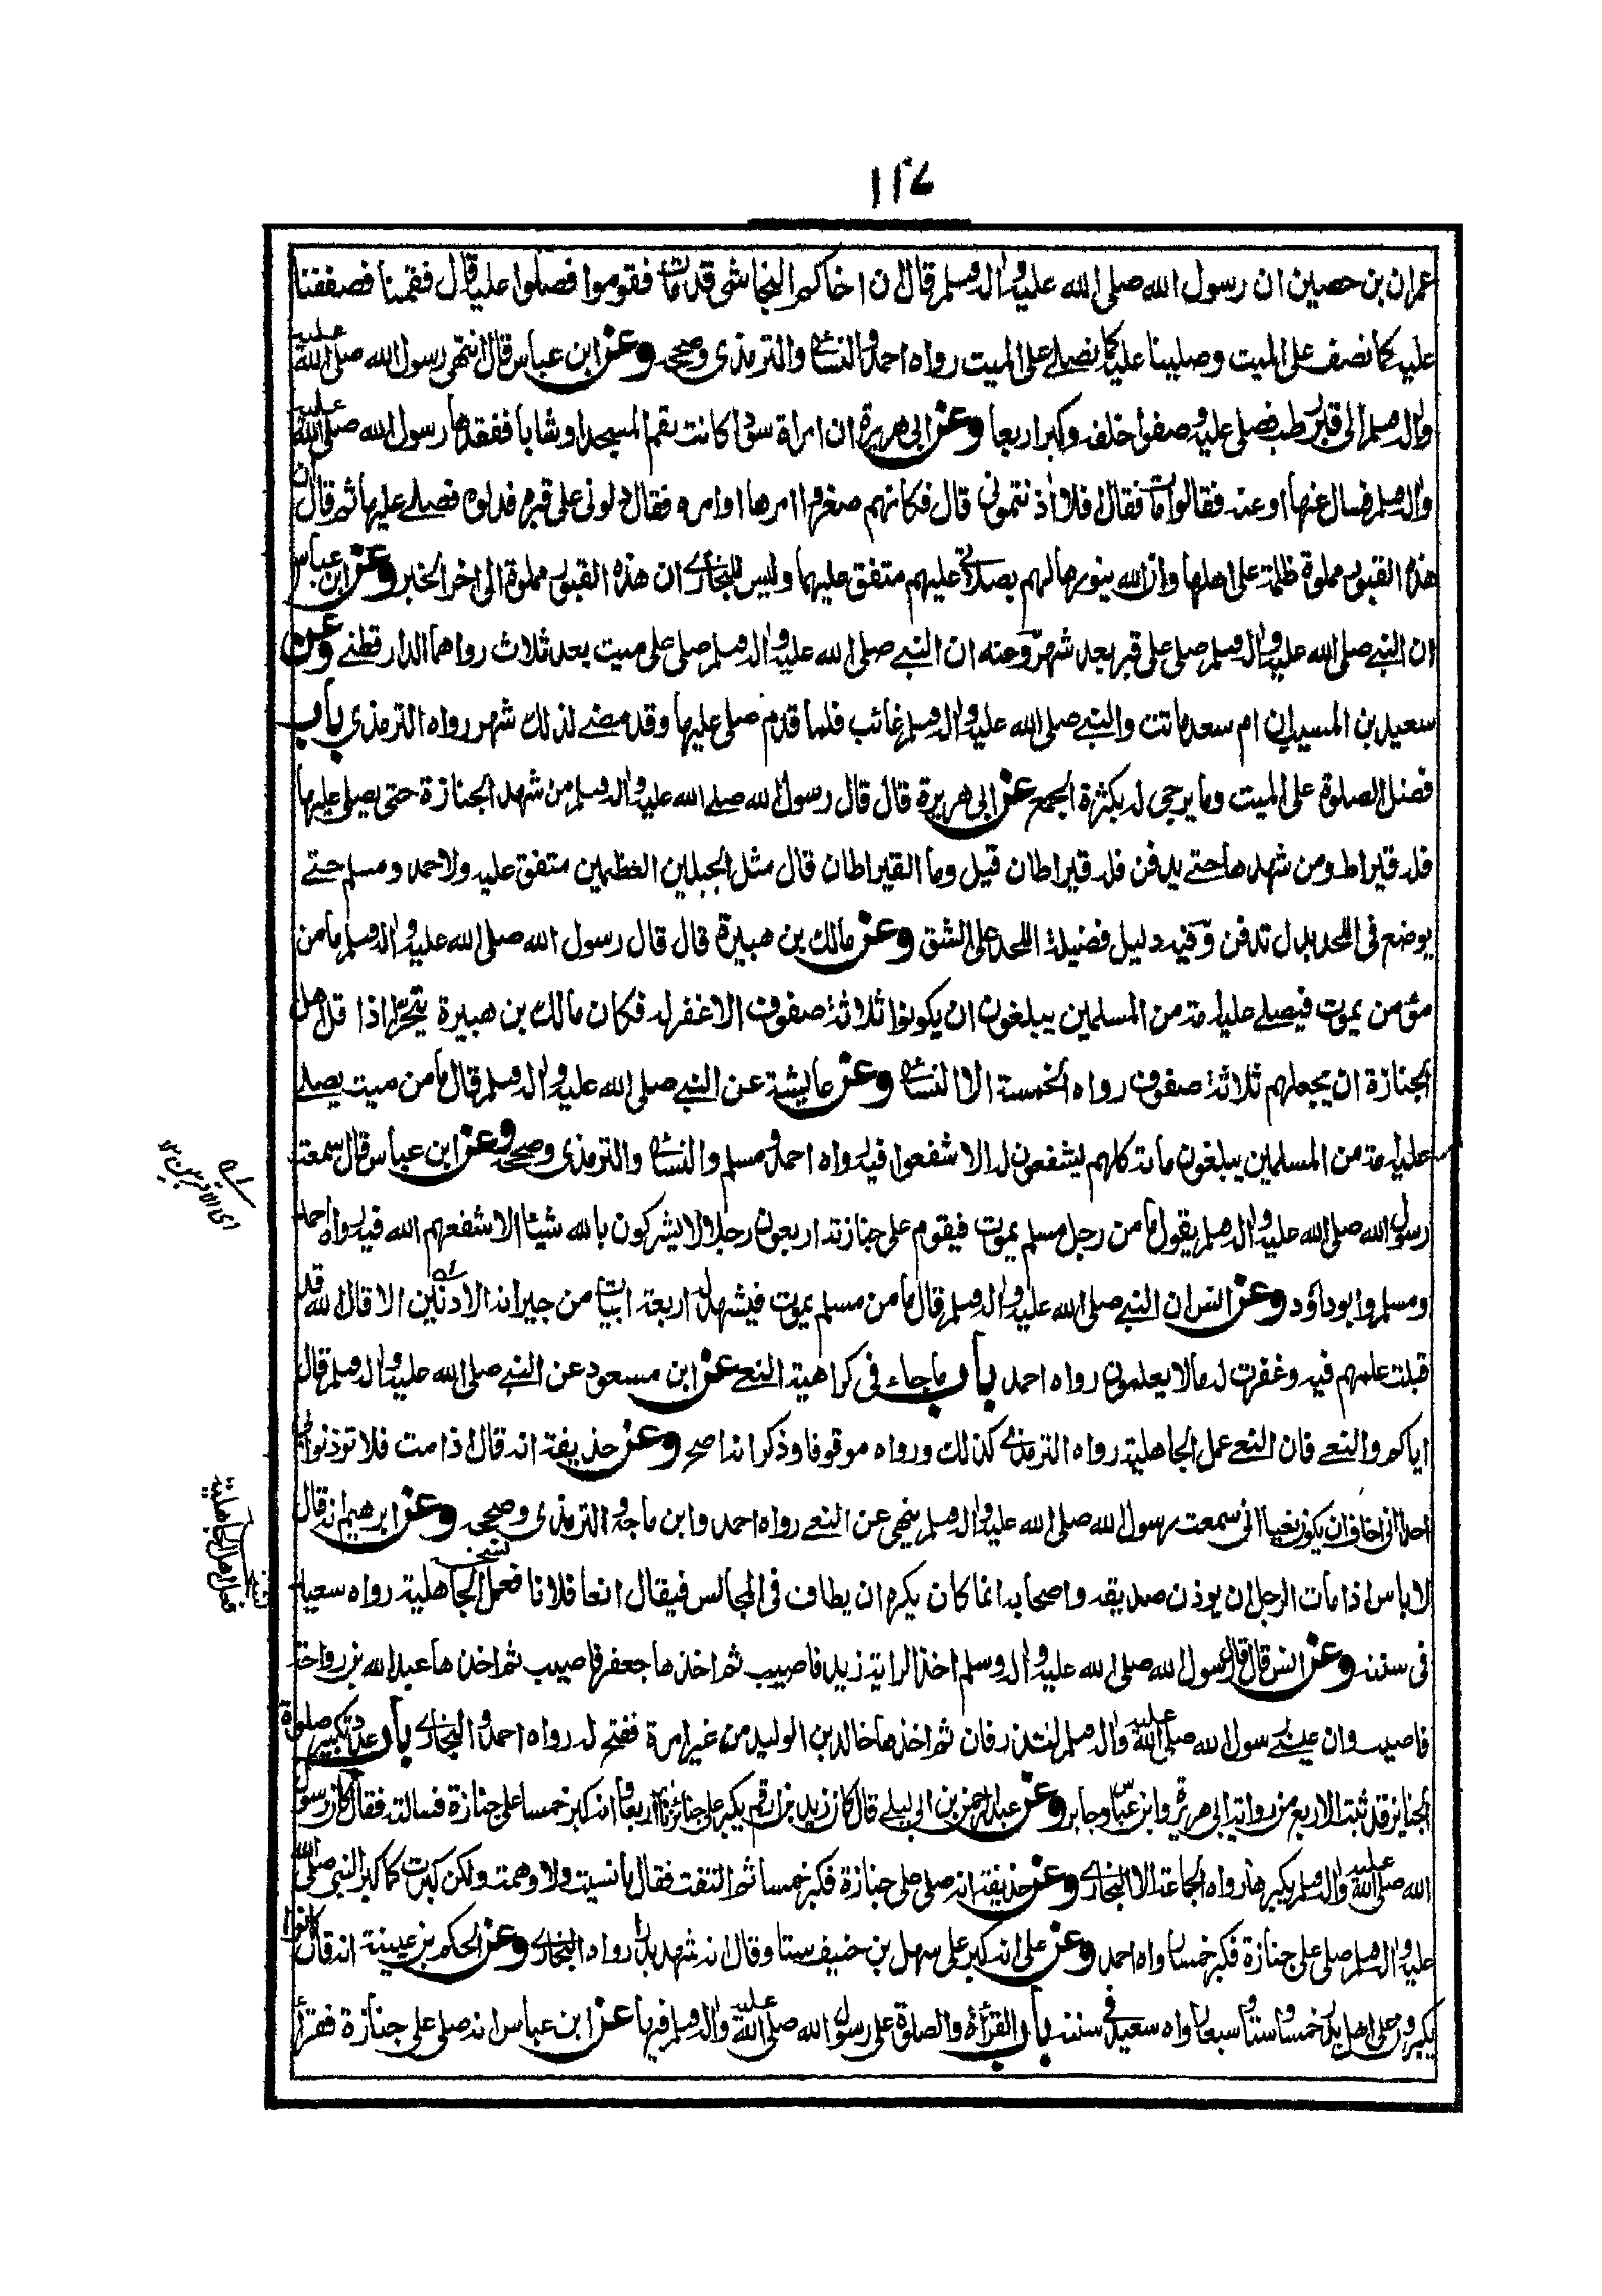 ۱۱۷
عمران بن حصين ان رسول الله صلى الله عليه واله وسلم قال ان اخاكم النجاشي قد مات فقوموا فصلوا عليه قال فقمنا فصففنا
عليه كما نصف على الميت وصلينا عليه كما نصلي على الميت رواه احمد والنسائي والترمذي وصححه وعن ابن عباس قال انتهى رسول الله صلى الله عليه
واله وسلم الى قبر رطب فصلى عليه وصفوا خلفه وكبر اربعا وعن ابي هريرة ان امراة سودا كانت تقم المسجد او شابا ففقدها رسول الله صلى الله عليه
واله وسلم فسال عنها او عنه فقالوا مات فقال افلا اذنتموني قال فكانهم صغروا امرها او امره فقال دلوني على قبره فدلوه فصلى عليها ثم قال ان
هذه القبور مملوة ظلمة على اهلها وان الله ينورها لهم بصلاتي عليهم متفق عليهما وليس للبخاري ان هذه القبور مملوة الى اخر الخبر وعن ابن عباس
ان النبي صلى الله عليه واله وسلم صلى على قبر بعد شهر وعنه ان النبي صلى الله عليه واله وسلم صلى على ميت بعد ثلاث رواهما الدارقطني وعن
سعيد بن المسيب ان ام سعد ماتت والنبي صلى الله عليه واله وسلم غائب فلما قدم صلى عليها وقد مضى لذلك شهر رواه الترمذي باب
فضل الصلوة على الميت وما يرجى له بكثرة الجمع عن ابي هريرة قال قال رسول الله صلى الله عليه واله وسلم من شهد الجنازة حتى يصلى عليها
فله قيراط ومن شهدها حتى يدفن فله قيراطان قيل وما القيراطان قال مثل الجبلين العظيمين متفق عليه ولاحمد ومسلم حتى
يوضع في اللحد بدل تدفن وفيه دليل فضيلة اللحد على الشق وعن مالك بن هبيرة قال قال رسول الله صلى الله عليه واله وسلم ما من
مؤمن يموت فيصلي عليه امة من المسلمين يبلغون ان يكونوا ثلاثة صفوف الا غفر له فكان مالك بن هبيرة يتحرى اذا قل اهل
الجنازة ان يجعلهم ثلاثة صفوف رواه الخمسة الا النسائي وعن عايشة عن النبي صلى الله عليه واله وسلم قال ما من ميت يصلي
عليه امة من المسلمين يبلغون مائة كلهم يشفعون له الا شفعوا فيه رواه احمد ومسلم والنسائي والترمذي وصححه وعن ابن عباس قال سمعت
رسول الله صلى الله عليه واله وسلم يقول ما من رجل مسلم يموت فيقوم على جنازته اربعون رجلا لا يشركون بالله شيئا الا شفعهم الله فيه رواه احمد
ومسلم وابوداؤد وعن انس ان النبي صلى الله عليه واله وسلم قال ما من مسلم يموت فيشهد له اربعة ابيات من جيرانه الادنين الا قال الله قد
قبلت علمهم فيه وغفرت له ما لا يعلمون رواه احمد باب ما جاء في كراهية النعي عن ابن مسعود عن النبي صلى الله عليه واله وسلم قال
اياكم والنعي فان النعي عمل الجاهلية رواه الترمذي كذلك ورواه موقوفا وذكر انه اصح وعن حذيفة انه قال اذا مت فلا توذنوا بي
احدا اني اخاف ان يكون نعيا اني سمعت رسول الله صلى الله عليه واله وسلم ينهى عن النعي رواه احمد وابن ماجة والترمذي وصححه وعن ابرهيم انه قال
لا باس اذا مات الرجل ان يوذن صديقه واصحابه انما كان يكره ان يطاف في المجالس فيقال انعا فلانا فعل الجاهلية رواه سعيد
في سننه وعن انس قال قال رسول الله صلى الله عليه واله وسلم اخذ الراية زيد فاصيب ثم اخذها جعفر فاصيب ثم اخذها عبد الله بن رواحة
فاصيب وان عيني رسول الله صلى الله عليه واله وسلم لتذرفان ثم اخذها خالد بن الوليد من غير امرة ففتح له رواه احمد والبخاري باب عدد تكبير صلوة
الجنايز قد ثبت الاربع من رواية ابي هريرة وابن عباس وجابر وعن عبد الرحمن بن ابي ليلى قال كان زيد بن ارقم يكبر على جنائزنا اربعا وانه كبر خمسا على جنازة فسالته فقال كان رسول
الله صلى الله عليه واله وسلم يكبرها رواه الجماعة الا البخاري وعن حذيفة انه صلى على جنازة فكبر خمسا ثم التفت فقال ما نسيت ولا وهمت ولكن كبرت كما كبر النبي صلى الله
عليه واله وسلم صلى على جنازة فكبر خمسا رواه احمد وعن علي انه كبر على سهل بن حنيف ستا وقال انه شهد بدرا رواه البخاري وعن الحكم بن عيينة انه قال كانوا
يكبرون على اهل بدر خمسا وستا وسبعا رواه سعيد في سننه باب القراءة والصلوة على رسول الله صلى الله عليه واله وسلم فيها عن ابن عباس انه صلى على جنازة فقرأ